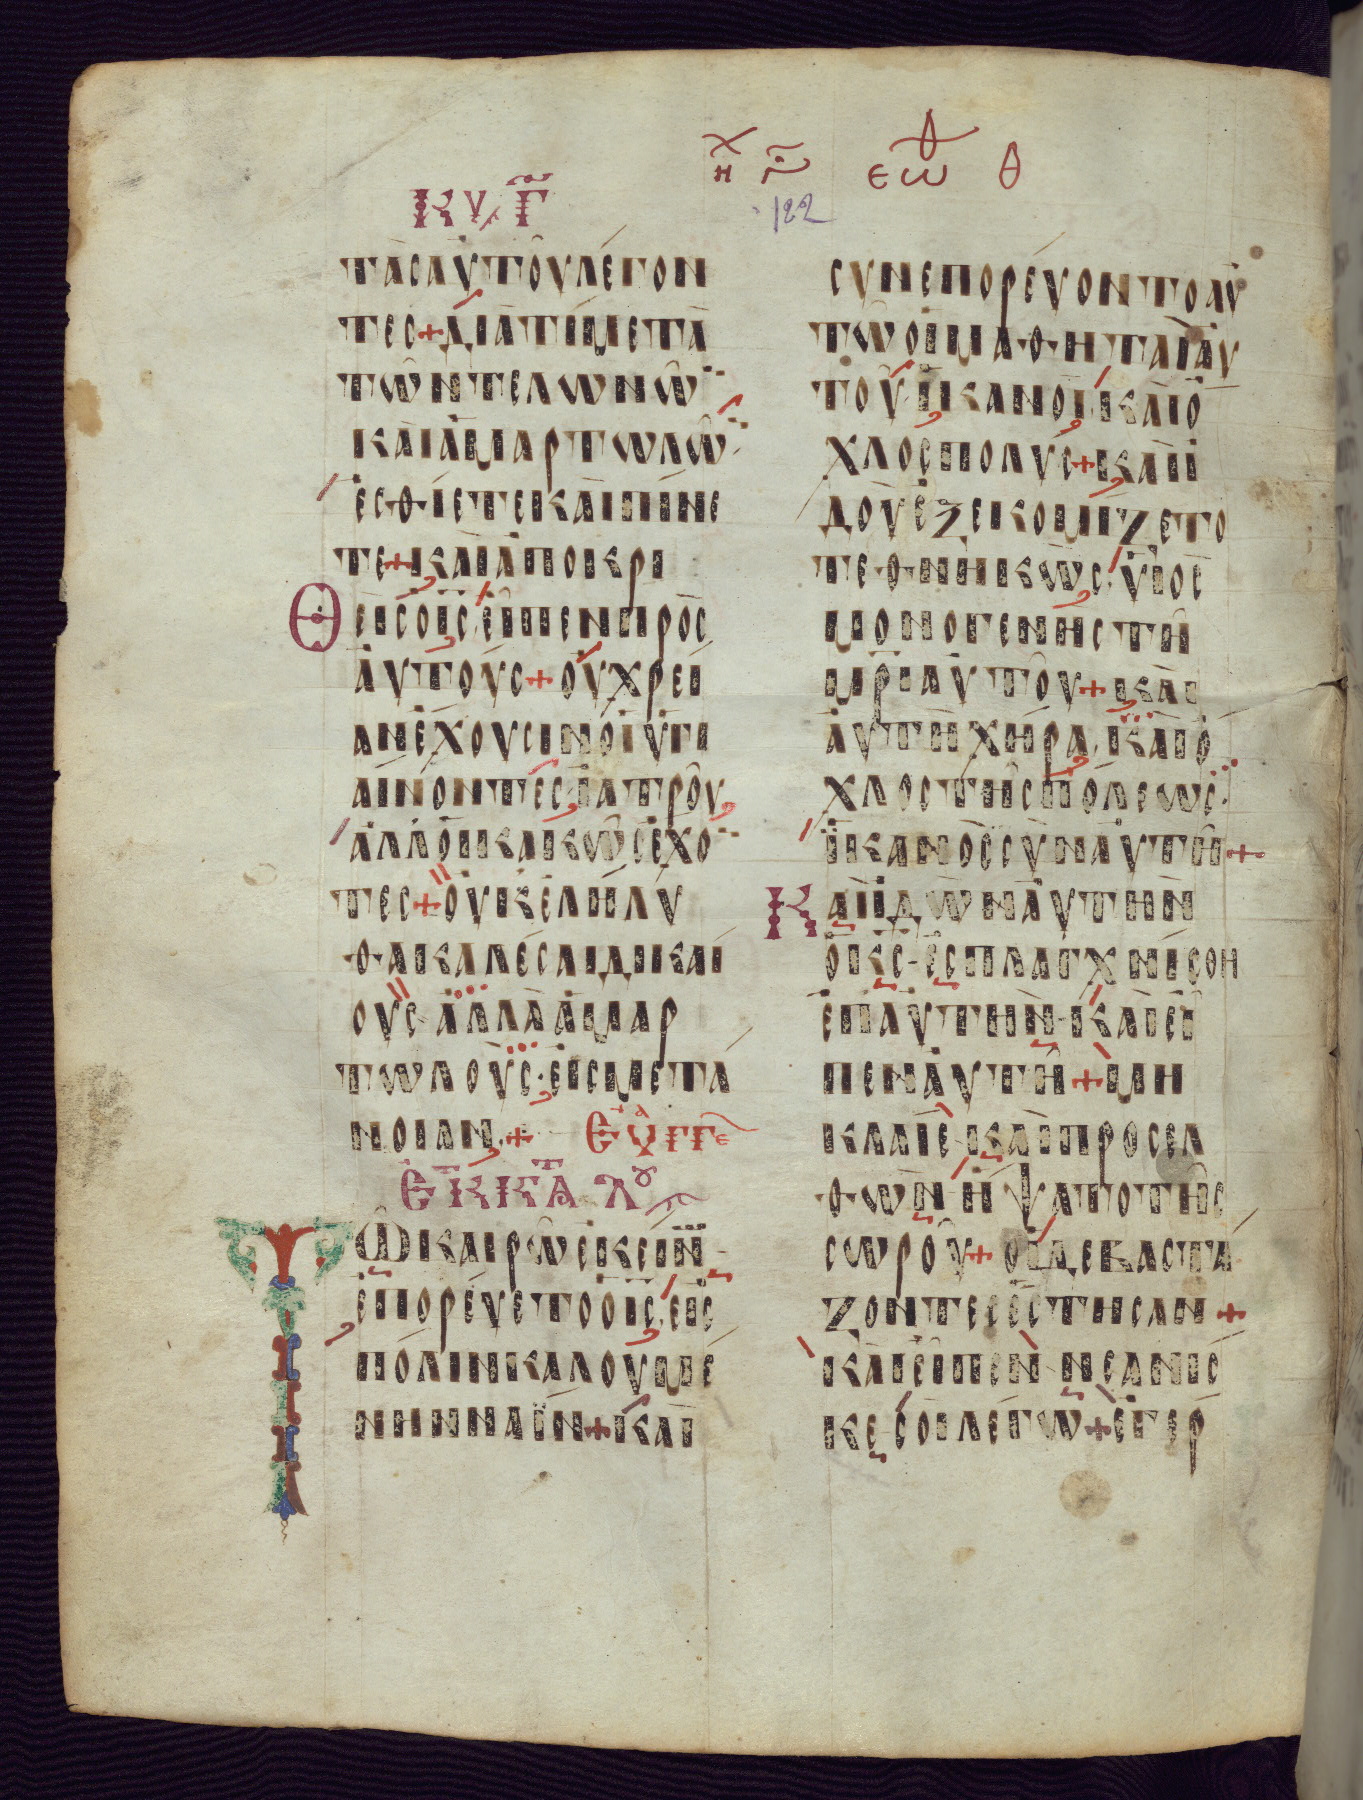 ΚΥ Γ
122
ΤΑΣ ΑΥΤΟΥ ΛΕΓΟΝ
ΤΕΣ + ΔΙΑΤΙ ΜΕΤΑ
ΤΩΝ ΤΕΛΩΝΩ
ΚΑΙ ΑΜΑΡΤΩΛΩ
ΕΣΘΙΕΤΕ ΚΑΙ ΠΙΝΕ
ΤΕ + ΚΑΙ ΑΠΟΚΡΙ
ΘΕΙΣ Ο ΙΣ ΕΙΠΕΝ ΠΡΟΣ
ΑΥΤΟΥΣ + ΟΥ ΧΡΕΙ
ΑΝ ΕΧΟΥΣΙΝ ΟΙ ΥΓΙ
ΑΙΝΟΝΤΕΣ ΙΑΤΡΟΥ
ΑΛΛ ΟΙ ΚΑΚΩΣ ΕΧΟ
ΤΕΣ + ΟΥΚ ΕΛΗΛΥ
ΘΑ ΚΑΛΕΣΑΙ ΔΙΚΑΙ
ΟΥΣ ΑΛΛΑ ΑΜΑΡ
ΤΩΛΟΥΣ ΕΙΣ ΜΕΤΑ
ΝΟΙΑΝ + ΕΥΑΓΓΕ
ΕΚ Κ ΚΑΤΑ ΛΟΥ
ΤΩ ΚΑΙΡΩ ΕΚΕΙΝ
ΕΠΟΡΕΥΕΤΟ Ο ΙΣ ΕΙΣ
ΠΟΛΙΝ ΚΑΛΟΥΜΕ
ΝΗΝ ΝΑΪΝ + ΚΑΙ
ΣΥΝΕΠΟΡΕΥΟΝΤΟ ΑΥ
ΤΩ ΟΙ ΜΑΘΗΤΑΙ ΑΥ
ΤΟΥ ΙΚΑΝΟΙ ΚΑΙ Ο
ΧΛΟΣ ΠΟΛΥΣ + ΚΑΙ Ι
ΔΟΥ ΕΞΕΚΟΜΙΖΕΤΟ
ΤΕΘΝΗΚΩΣ ΥΙΟΣ
ΜΟΝΟΓΕΝΗΣ ΤΗ
ΜΡΙ ΑΥΤΟΥ + ΚΑΙ
ΑΥΤΗ ΧΗΡΑ ΚΑΙ Ο
ΧΛΟΣ ΤΗΣ ΠΟΛΕΩΣ
ΙΚΑΝΟΣ ΣΥΝ ΑΥΤΗ +
ΚΑΙ ΙΔΩΝ ΑΥΤΗΝ
Ο ΚΣ ΕΣΠΛΑΓΧΝΙΣΘΗ
ΕΠ ΑΥΤΗΝ ΚΑΙ ΕΙ
ΠΕΝ ΑΥΤΗ + ΜΗ
ΚΛΑΙΕ ΚΑΙ ΠΡΟΣΕΛ
ΘΩΝ ΗΨΑΤΟ ΤΗΣ
ΣΩΡΟΥ + ΟΙ ΔΕ ΒΑΣΤΑ
ΖΟΝΤΕΣ ΕΣΤΗΣΑΝ +
ΚΑΙ ΕΙΠΕΝ ΝΕΑΝΙΣ
ΚΕ ΣΟΙ ΛΕΓΩ + ΕΓΕΡ